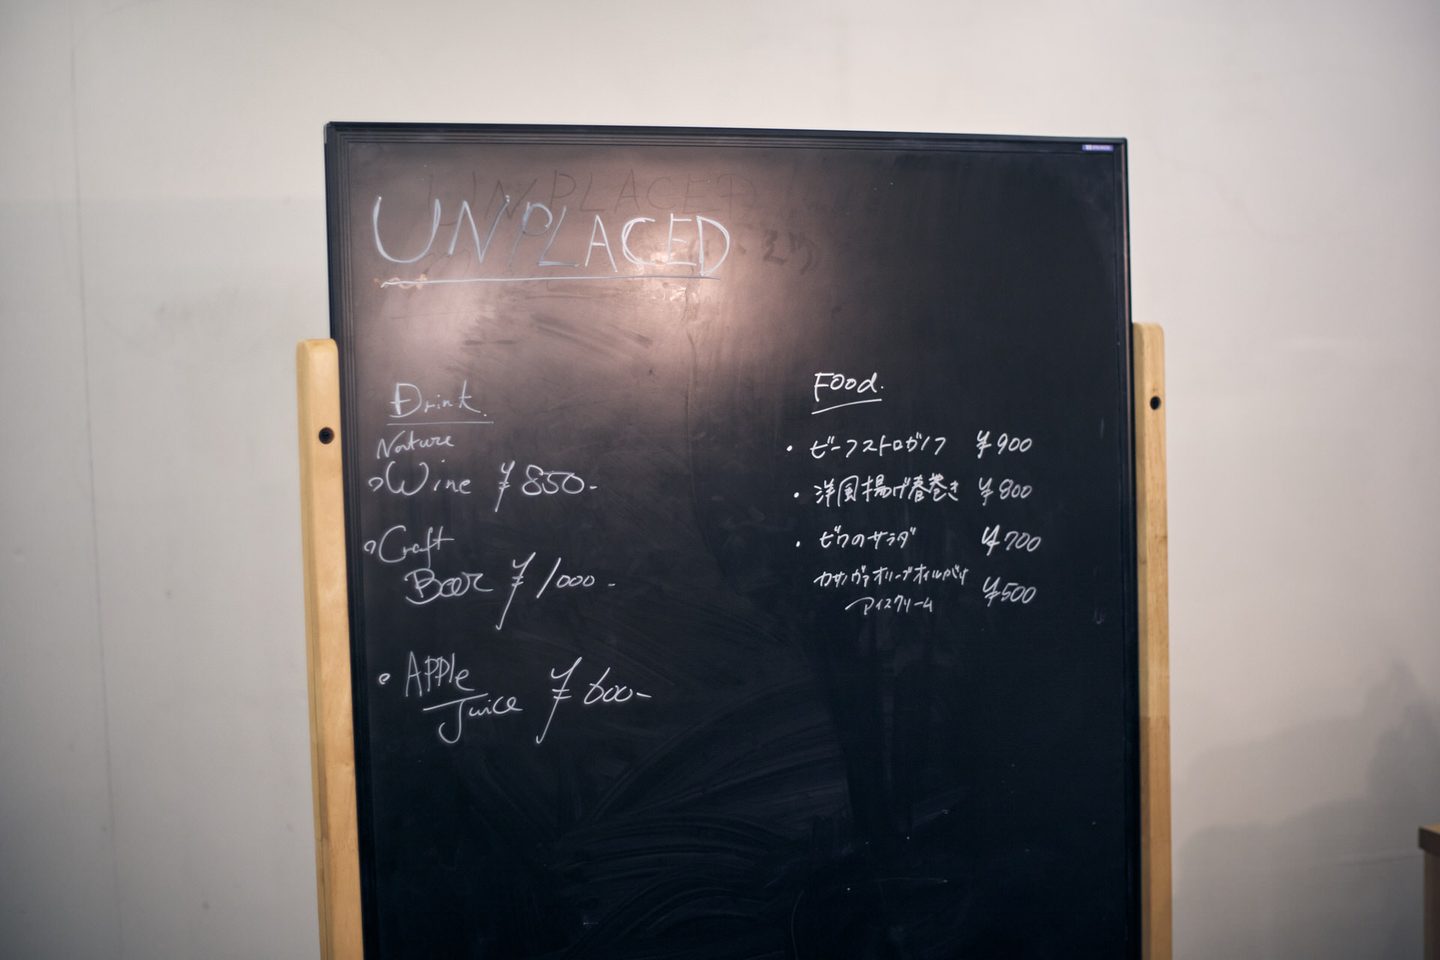 UNPLACED
Drink.
Nature
Wine ¥850-
Craft
Beer ¥1000-
• Apple
Juice ¥600-
Food.
• ビーフストロガノフ ¥900
• 洋風揚げ春巻き ¥800
• ビワのサラダ ¥700
カサノヴァオリーブオイルがけ ¥500
アイスクリーム